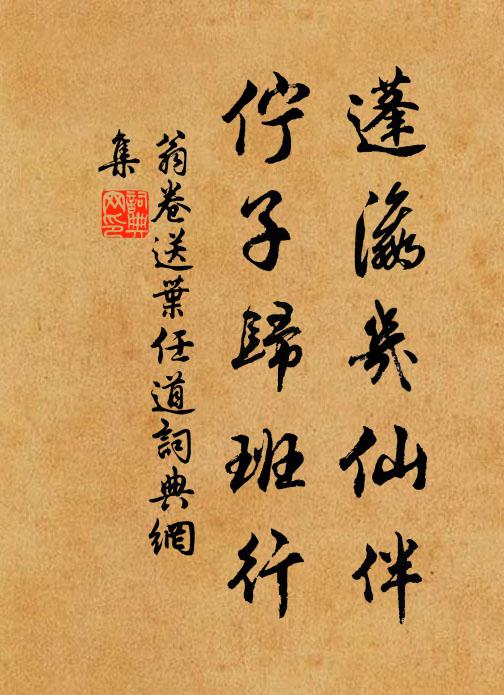 蓬瀛幾仙伴
佇子歸班行
翁卷送葉任道詞典網
集
詞典网印